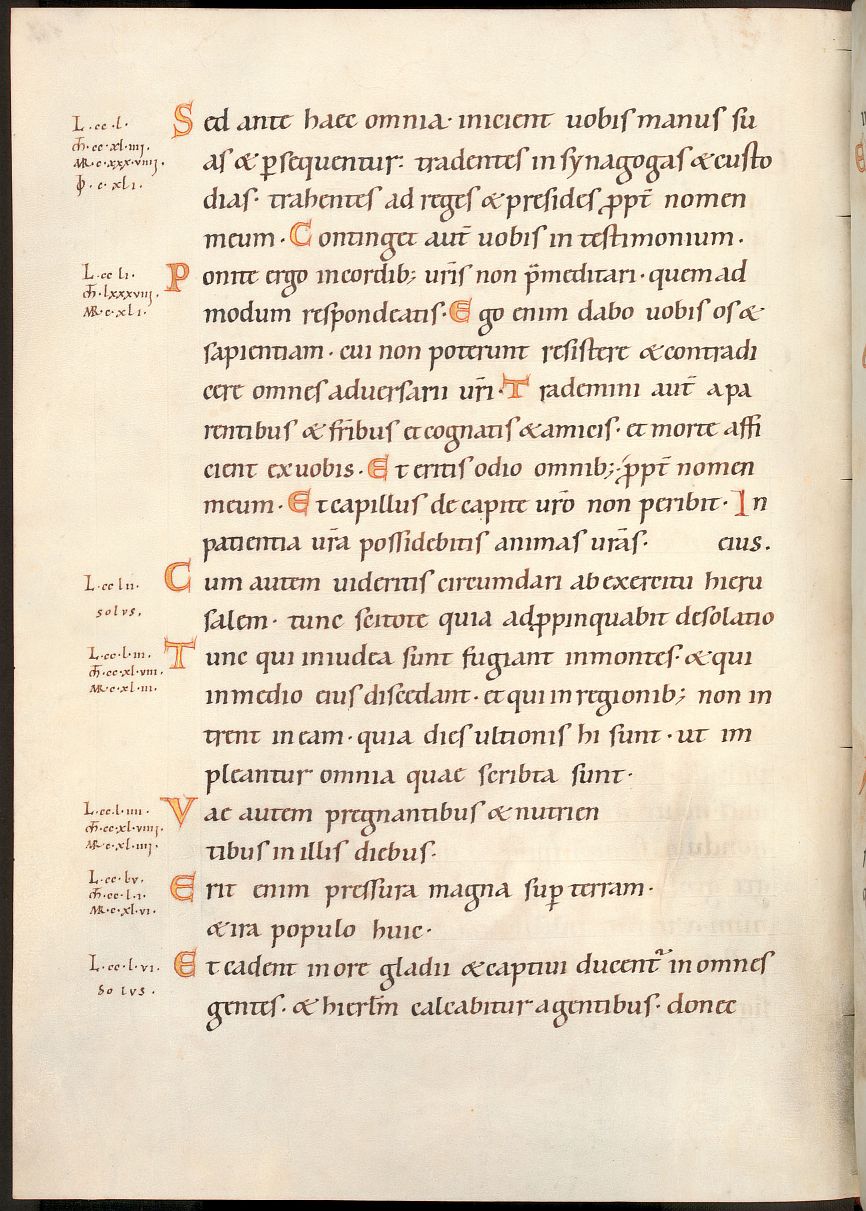 L·cc·l·
m̄·cc·xl·iiij·
MR·c·xxx·viiij·
ɸ·c·xli·
Sed ante haec omnia· inicient uobis manus su
as & p̱sequentur: tradentes in synagogas & custo
dias· trahentes ad reges & presides p̱pt̄ nomen
meum· Continget aut̄ uobis in testimonium·
L·cc li·
m̄·lxxxviij·
MR·c·xli·
Ponite ergo in cordib; ur̄is non p̄meditari· quem ad
modum respondeatis· Ego enim dabo uobis os &
sapientiam· cui non poterunt resistere & contradi
cere omnes aduersarii ur̄i· Trademini aut̄ a pa
rentibus & fr̄ibus et cognatis & amicis· et morte affi
cient ex uobis· Et eritis odio omnib; p̱pt̄ nomen
meum· Et capillus de capite ur̄o non peribit· In
patientia ur̄a possidebitis animas ur̄as· eius.
L·cc lii·
solus.
Cum autem uideritis circumdari ab exercitu hieru
salem· tunc scitote quia adp̱pinquabit desolatio
L·cc·l·iii·
m̄·cc·xl·viii·
MR·c·xl·iii·
Tunc qui in iudea sunt fugiant in montes· & qui
in medio eius discedant· et qui in regionib; non in
trent in eam· quia dies ultionis hi sunt· ut im
pleantur omnia quae scribta sunt·
L·cc·l·iiii·
m̄·cc·xl·viiij·
MR·c·xl·iiij·
Vae autem pregnantibus & nutrien
tibus in illis diebus·
L·cc·lv·
m̄·cc·l·i·
MR·c·xl·vi·
Erit enim pressura magna sup̱ terram·
& ira populo huic·
L·cc·l·vi·
solus.
Et cadent in ore gladii & captiui ducent᷑ in omnes
gentes· & hierl̄m calcabitur a gentibus· donec